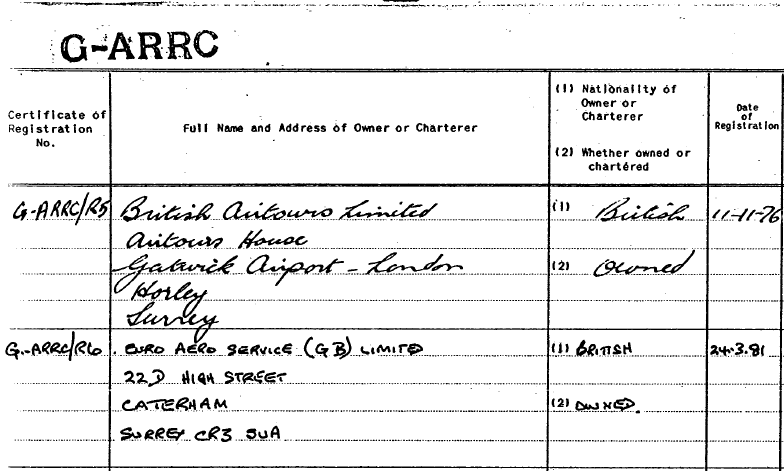 G-ARRC
Certificate of Registration No.
Full Name and Address of Owner or Charterer
(1) Nationality of Owner or Charterer
(2) Whether owned or chartéred
Date of Registration
G-ARRC/R5 British Airtours Limited (1) British 11-11-76
Airtours House
Gatwick Airport - London (2) Owned
Horley
Surrey
G-ARRC/R6 EURO AERO SERVICE (GB) LIMITED (1) BRITISH 24-3.81
22D HIGH STREET
CATERHAM (2) OWNED.
SURREY CR3 5UA